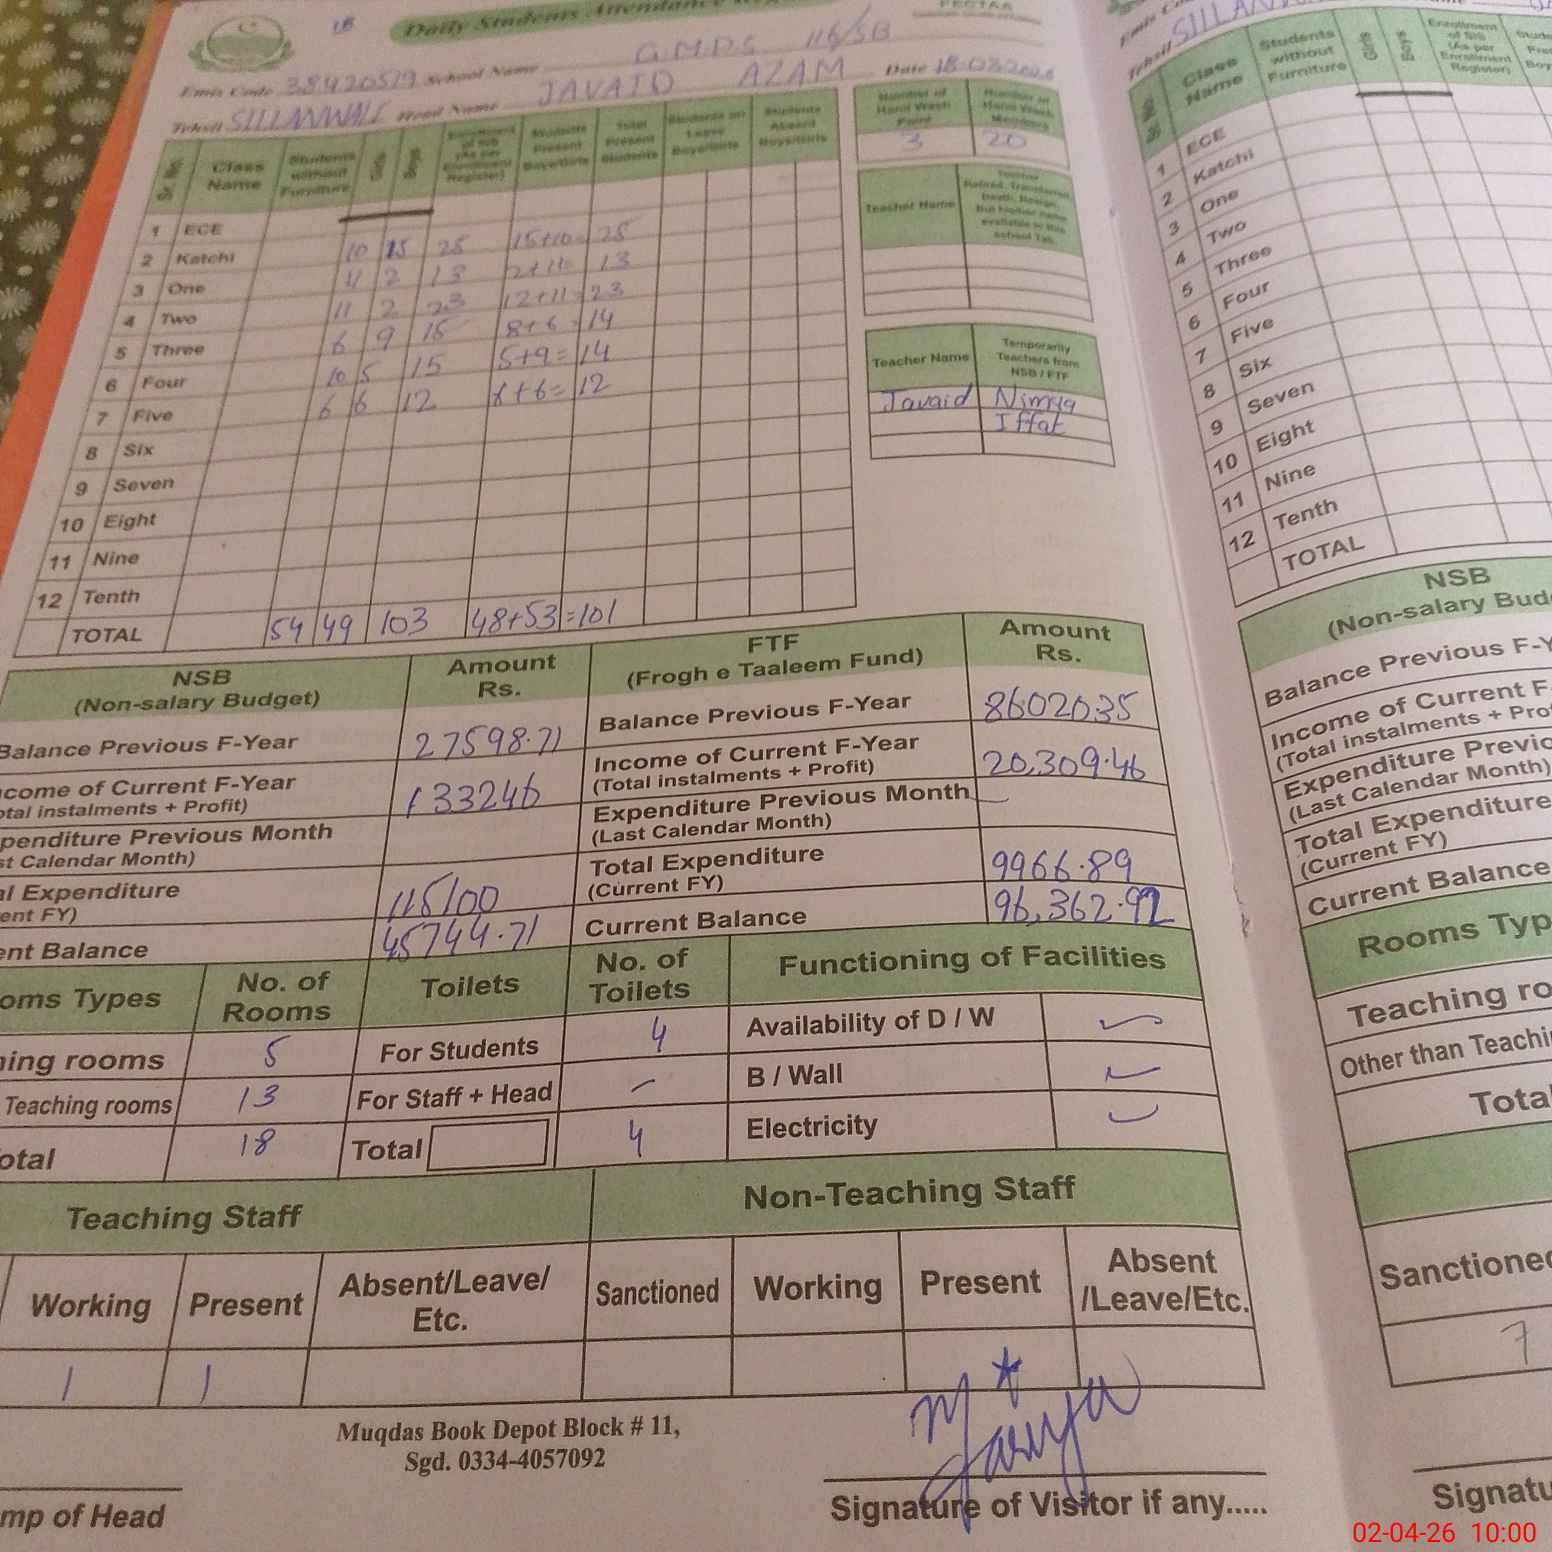 Daily Students Attendance
Emis Code 38420519 School Name G.M.P.S 116/SB
Tehsil SILLANWALI Head Name JAVAID AZAM Date 18-02-2026
Sr. No. Class Name Students without Furniture Girls Boys Enrollment of S/S (As per Enrollment Register) Students Present Boys/Girls Total Present Students Students on Leave Boys/Girls Students Absent Boys/Girls
1 ECE
2 Katchi 10 15 25 15+10= 25
3 One 11 2 13 2+11= 13
4 Two 11 2 23 12+11= 23
5 Three 6 9 15 8+6= 14
6 Four 10 5 15 5+9= 14
7 Five 6 6 12 6+6= 12
8 Six
9 Seven
10 Eight
11 Nine
12 Tenth
TOTAL 54 49 103 48+53=101
Number of Hand Wash Point
3 20
Teacher Name
Teacher Name Temporarily Teachers from NSB / FTF
Javaid
Iffat
NSB (Non-salary Budget) Amount Rs. FTF (Frogh e Taaleem Fund) Amount Rs.
Balance Previous F-Year 27598.71 Balance Previous F-Year 86020.35
come of Current F-Year 133246 Income of Current F-Year 20,309.46
otal instalments + Profit) (Total instalments + Profit)
penditure Previous Month Expenditure Previous Month —
st Calendar Month) (Last Calendar Month)
al Expenditure 115100 Total Expenditure 9966.89
ent FY) (Current FY)
ent Balance 45744.71 Current Balance 96,362.92
oms Types No. of Rooms Toilets No. of Toilets Functioning of Facilities
hing rooms 5 For Students 4 Availability of D / W
Teaching rooms 13 For Staff + Head – B / Wall
otal 18 Total 4 Electricity
Teaching Staff Non-Teaching Staff
Working Present Absent/Leave/ Etc. Sanctioned Working Present Absent /Leave/Etc.
1 1
Muqdas Book Depot Block # 11,
Sgd. 0334-4057092
mp of Head
Signature of Visitor if any.....
Tehsil SILLANW
Sr. No. Class Name Students without Furniture Girls Boys Enrollment of S/S (As per Enrollment Register)
1 ECE
2 Katchi
3 One
4 Two
5 Three
6 Four
7 Five
8 Six
9 Seven
10 Eight
11 Nine
12 Tenth
TOTAL
NSB
(Non-salary Bud
Balance Previous F-Y
Income of Current F
(Total instalments + Pro
Expenditure Previo
(Last Calendar Month)
Total Expenditure
(Current FY)
Current Balance
Rooms Typ
Teaching ro
Other than Teachi
Tota
Sanctione
7
Signatu
02-04-26 10:00